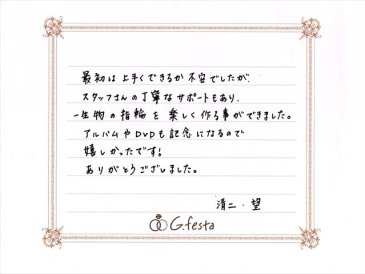 最初は上手くできるか不安でしたが、
スタッフさんの丁寧なサポートもあり、
一生物の指輪を楽しく作る事ができました。
アルバムやDVDも記念になるので
嬉しかったです!
ありがとうございました。
清二・望
G.festa